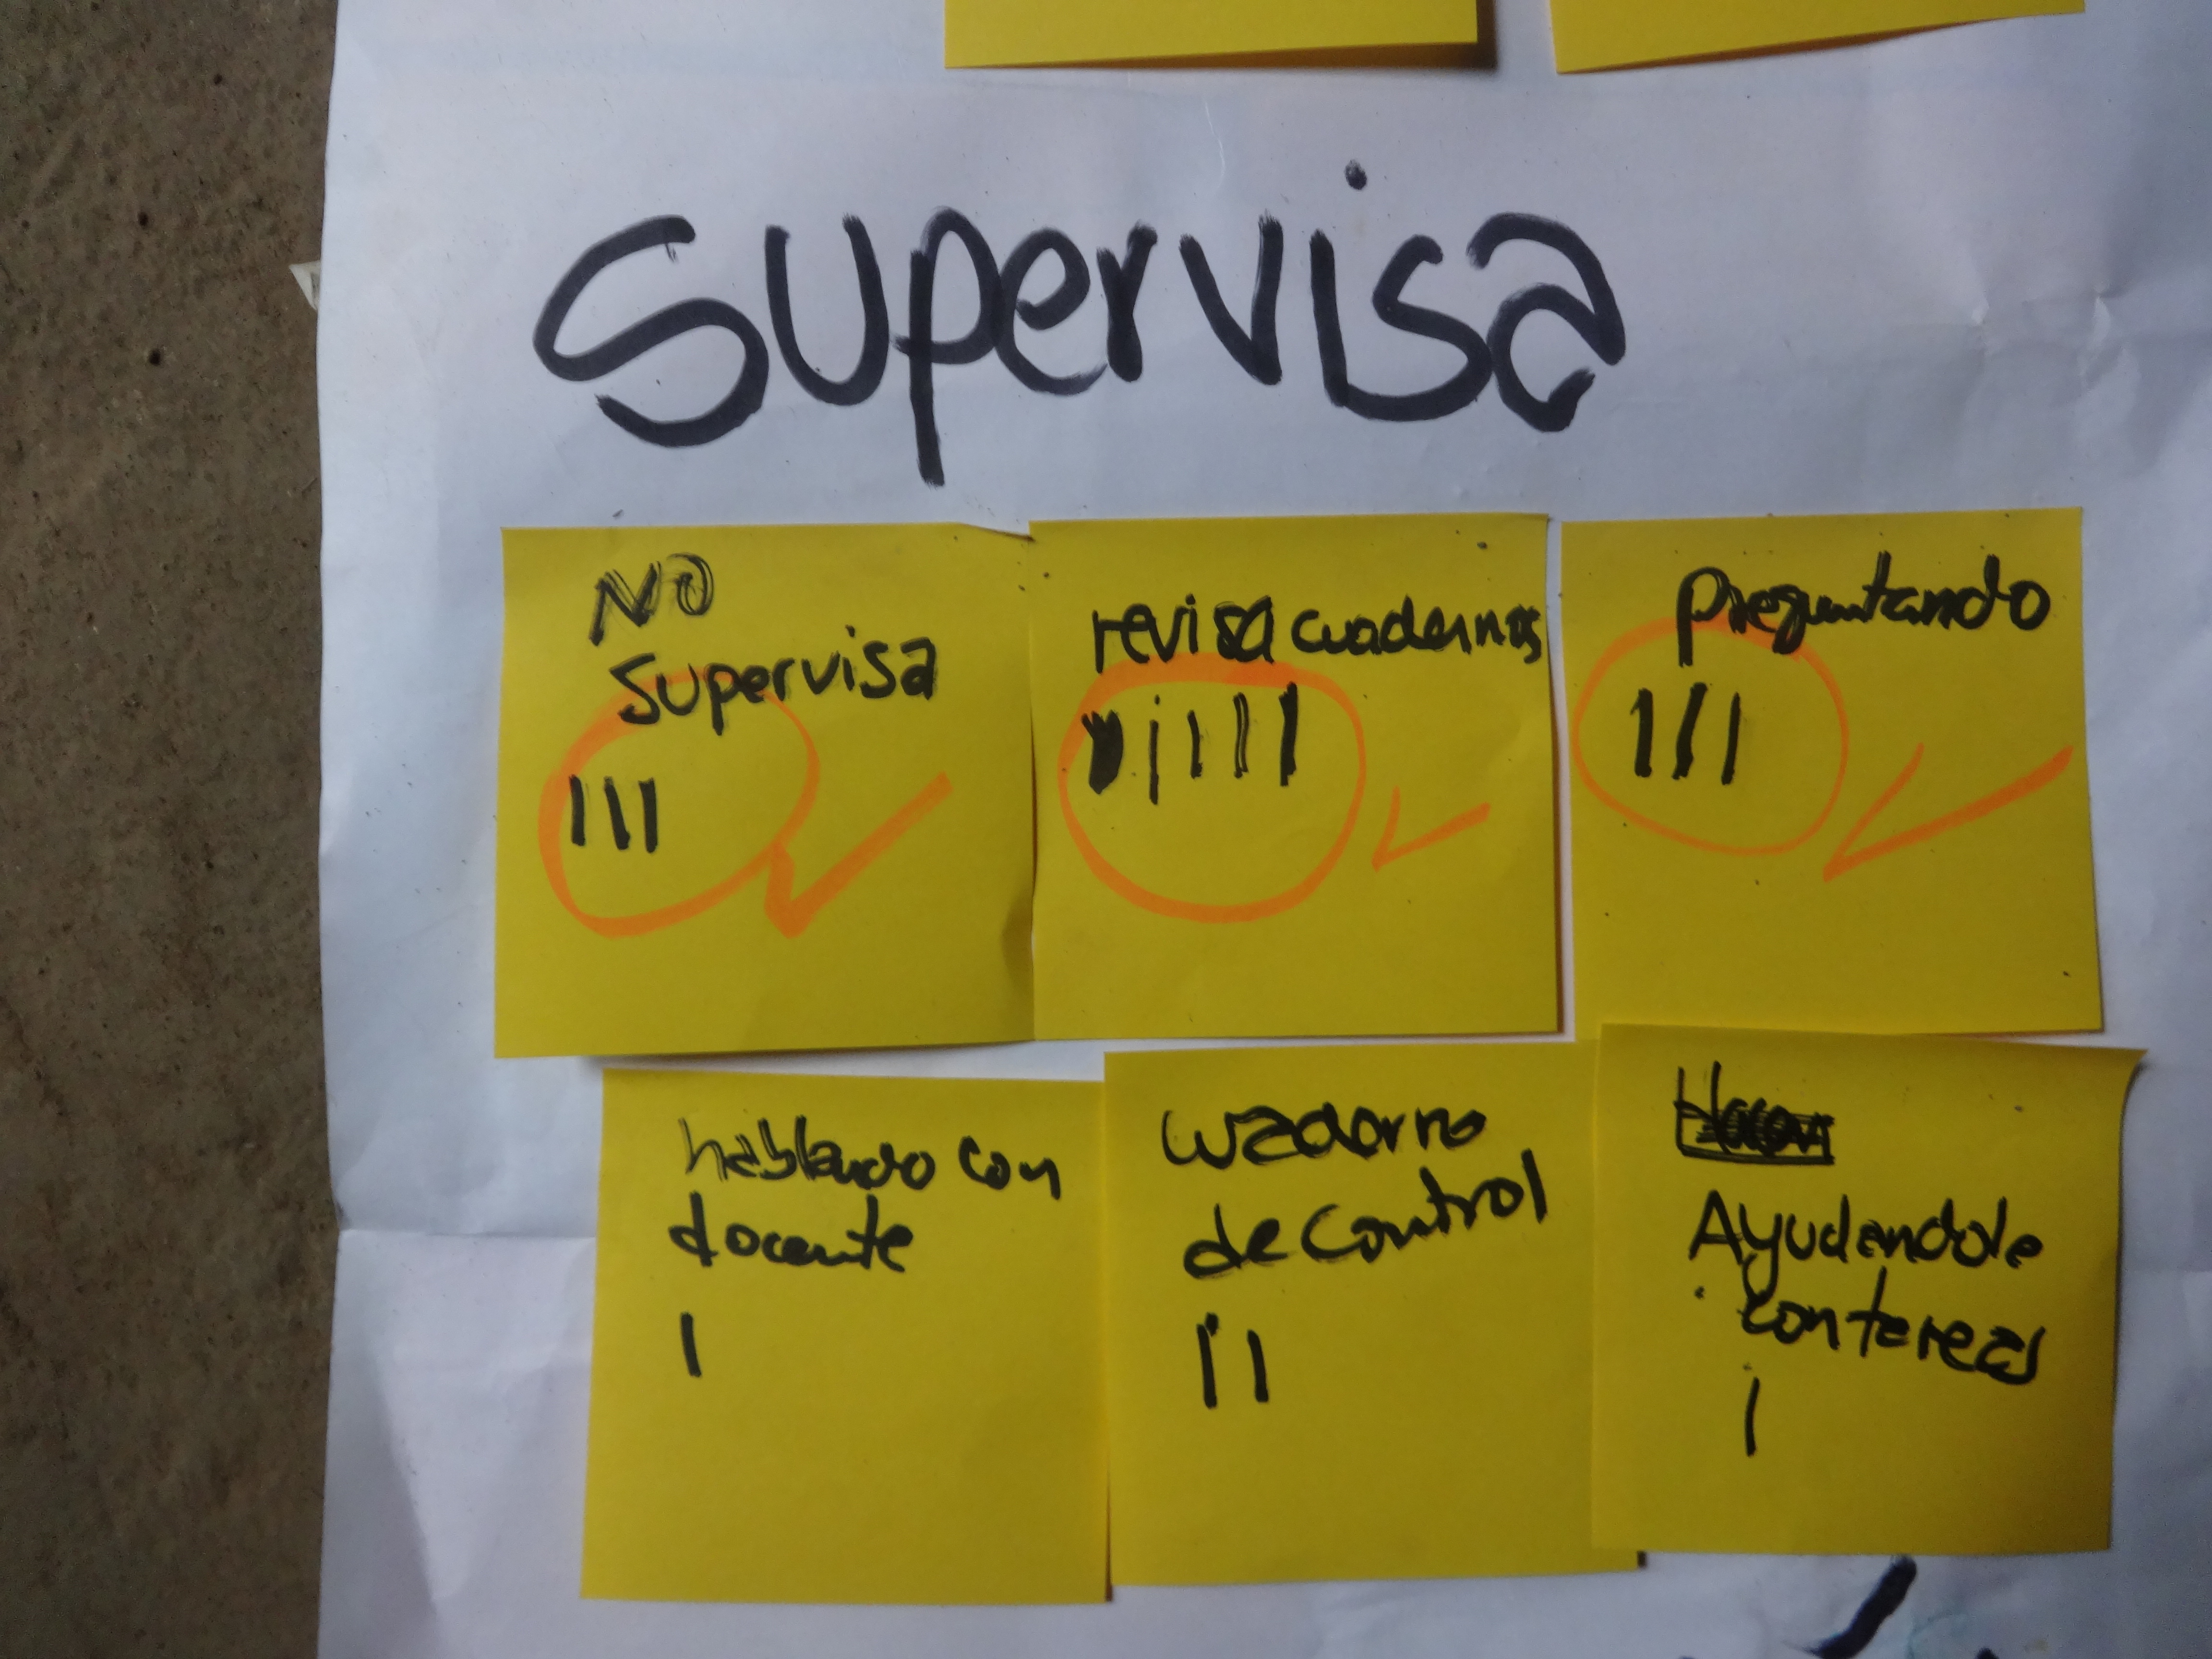 Supervisa
No
Supervisa
III
revisa cuadernos
IIIII
Preguntando
III
hablando con
docente
I
cuaderno
de control
II
Ayudandole
con tareas
I